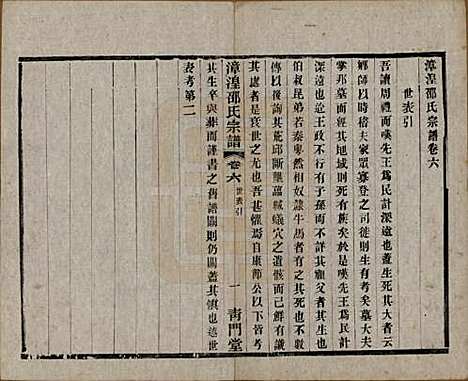 漳湟邵氏宗譜卷六
世表引
吾讀周禮而嘆先王為民計深遠也蓋生死其大者云
鄉師以時稽夫家眾寡登之司徒則生有考矣墓大夫
掌邦墓而正其地域則死有族矣於是嘆先王為民計
深遠也王政不行而子孫有不詳其祖父者其生也
伯叔昆弟若秦 然相奴隸牛馬者有之其死也不數
傳以後詢其荒邱斷壟蘊 螘穴之遺骸而已鮮有
其處者是衰世之尤也吾甚懼焉自康節公以下皆考
漳湟邵氏宗譜
卷六
世表引
一
青門堂
其生卒與葬而謹書之舊譜闕則仍闕蓋其慎也述世
表考第二